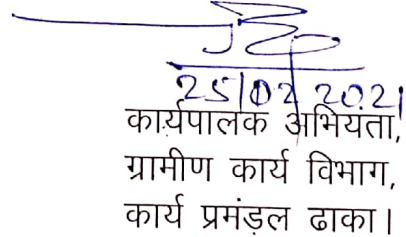 25/02/2021
कार्यपालक अभियंता,
ग्रामीण कार्य विभाग,
कार्य प्रमंड़ल ढाका।